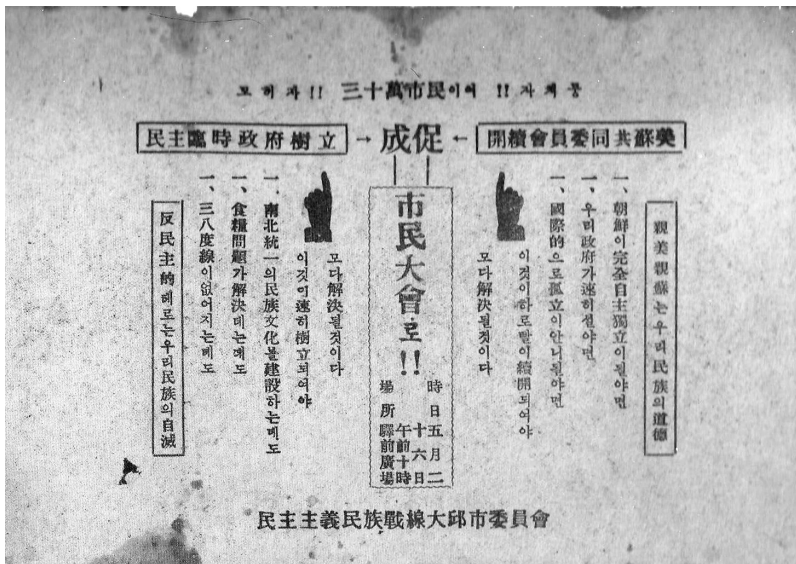 뭉치자!! 三十萬市民이여 모히자!!
美蘇共同委員會續開
→ 促成 ←
民主臨時政府樹立
親美親蘇는우리民族의道德
一、朝鮮이完全自主獨立이될야면
一、우리政府가速히설야면
一、國際的으로孤立이안니될야면
이것이하로빨이續開되여야
모다解決될것이다
市民大會로!!
時日 五月二
十六日
午前十時
場所 驛前廣場
모다解決될것이다
이것이速히樹立되여야
一、南北統一의民族文化를建設하는데도
一、食糧問題가解決데는데도
一、三八度線이없어지는데도
反民主的헤로는우리民族의自滅
民主主義民族戰線大邱市委員會